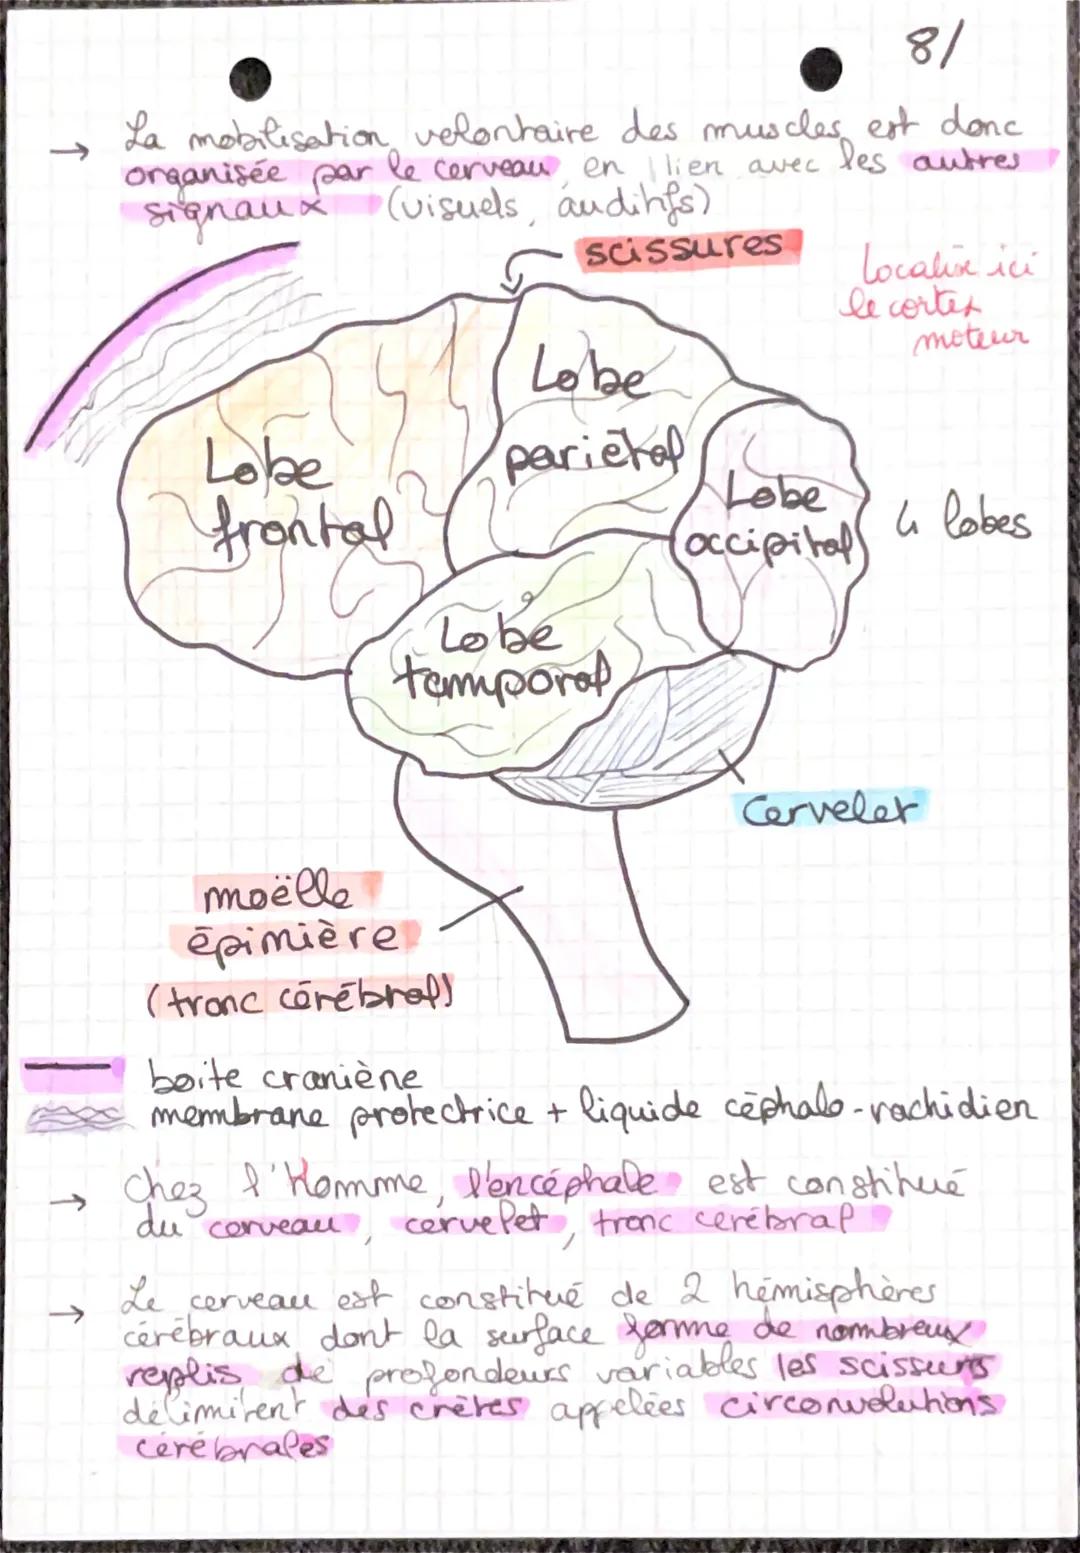 8/
→ La mobilisation velontaire des muscles est donc
organisée par le cerveau, en lien avec les autres
signaux (visuels, auditifs)
scissures
Localise ici
le cortex
moteur
Lobe
pariétal
Lobe
frontal
Lobe
occipital
4 lobes
Lobe
temporal
Cervelet
moëlle
épinière
(tronc cérébral)
boite craniène
membrane protectrice + liquide céphalo-rachidien
→ Chez l'Homme, l'encéphale est constitué
du cerveau, cervelet, tronc cerébral
→ Le cerveau est constitué de 2 hémisphères
cérébraux dont la surface forme de nombreux
replis de profondeurs variables les scissures
délimitent des crètes appelées circonvolutions
cérébrales